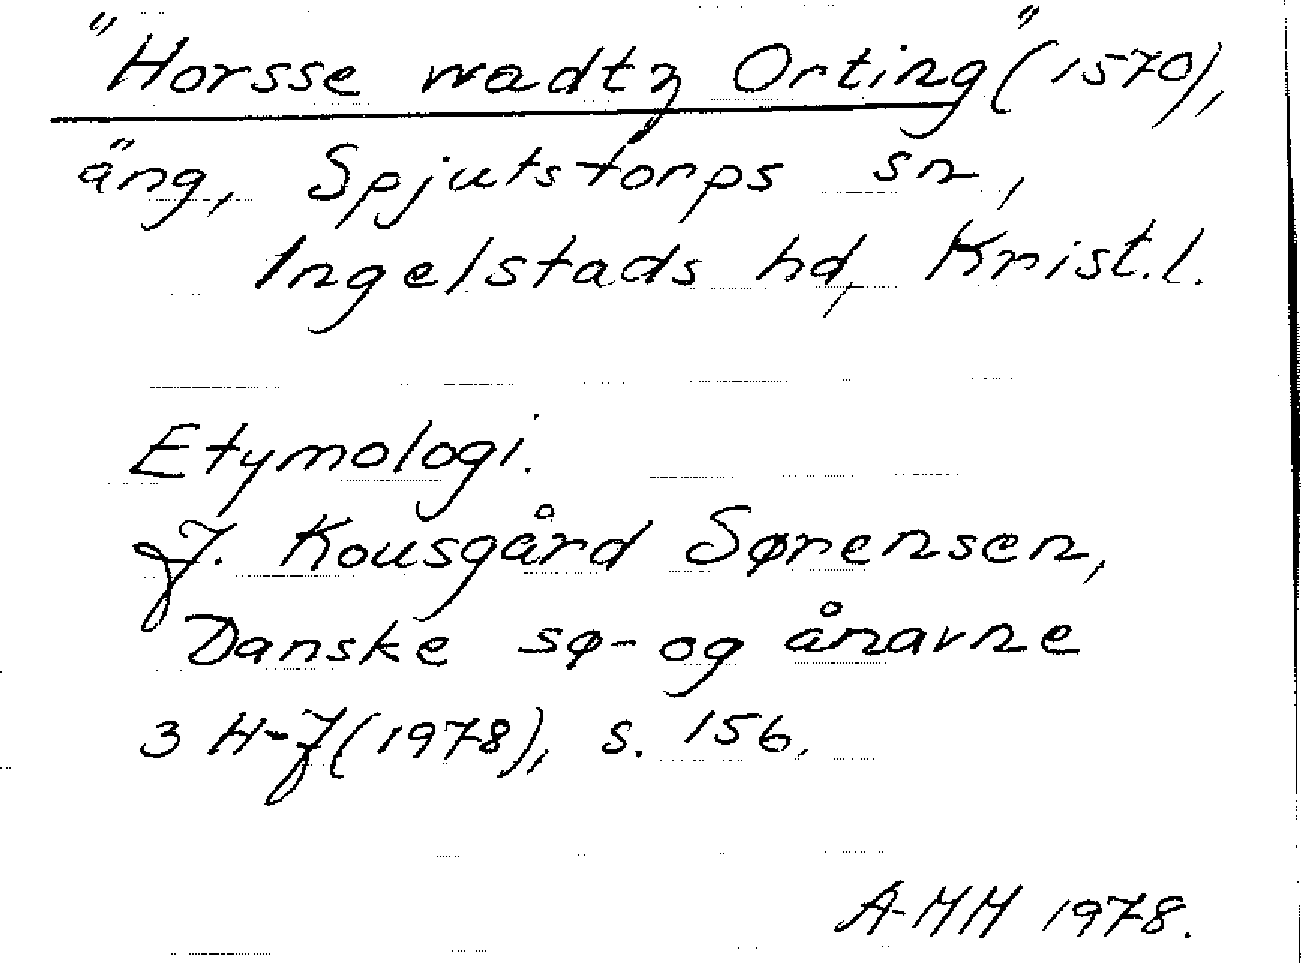 "Horsse wadtz Orting" (1570),
äng, Spjutstorps sn,
Ingelstads hd, Krist.l.
Etymologi.
J. Kousgård Sørensen,
Danske sø- og ånavne
3 H-J (1978), s. 156.
A-MH 1978.